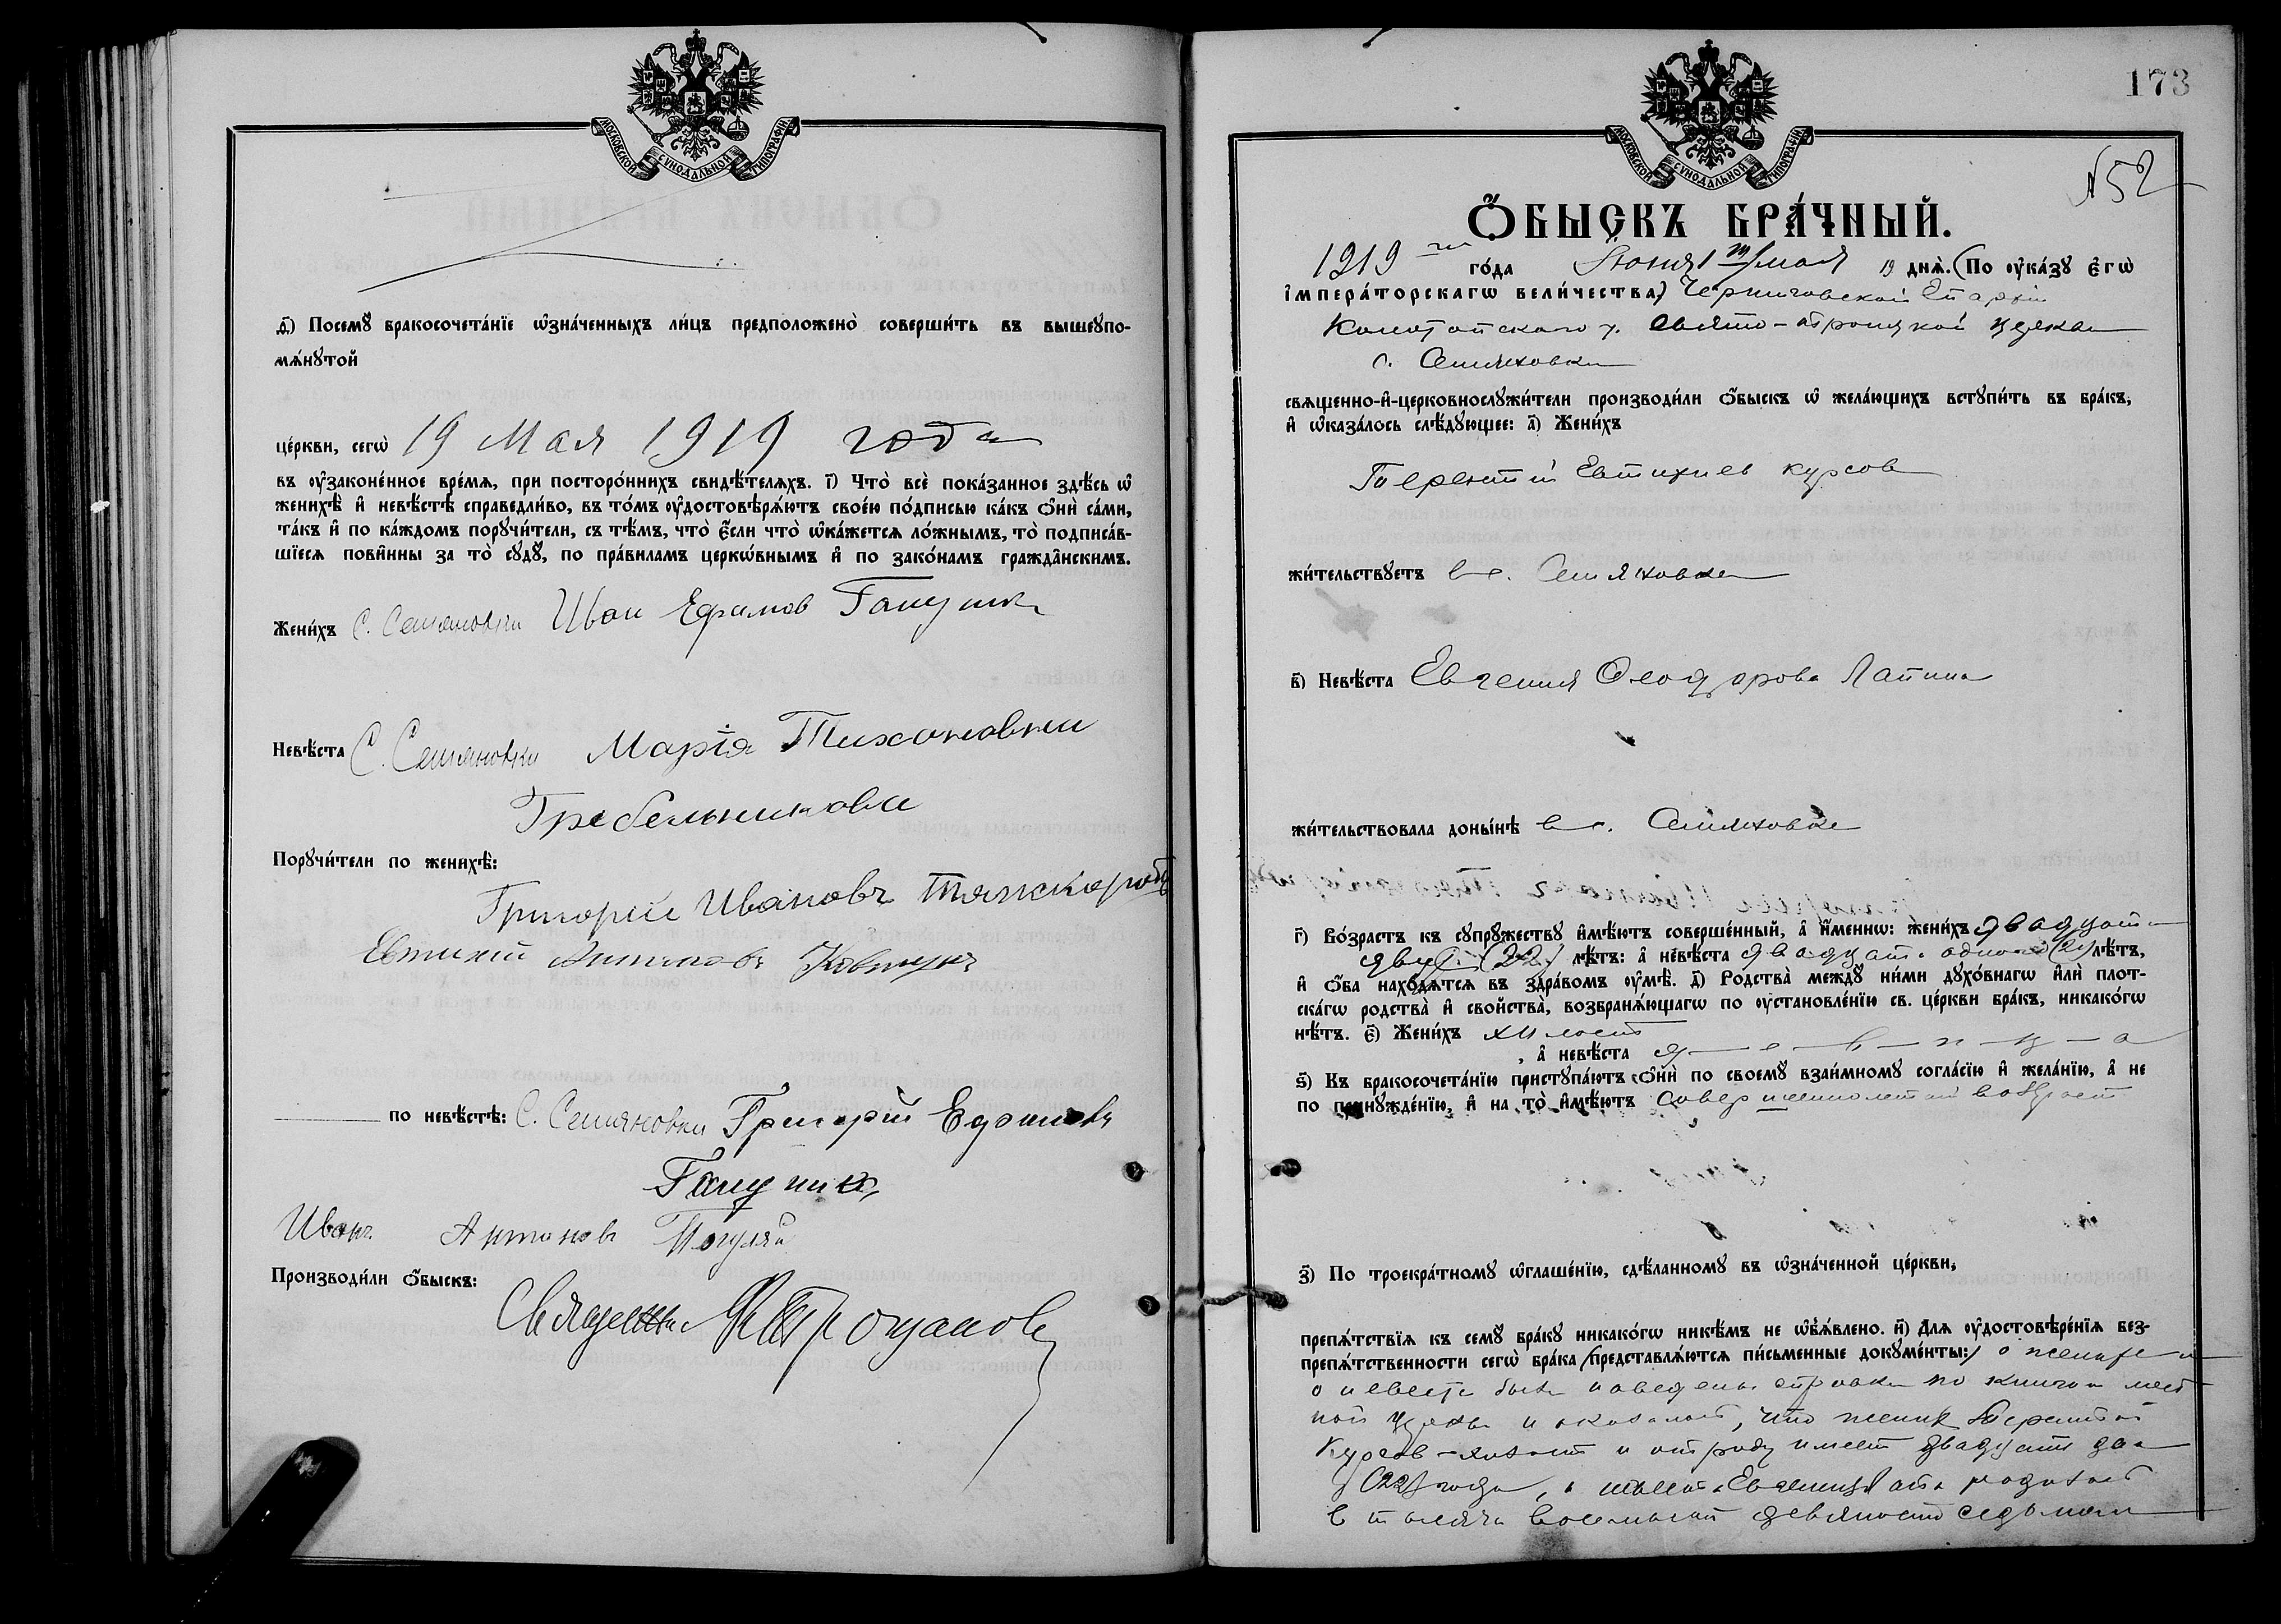 МОСКОВСКОЙ СѴНОДАЛЬНОЙ ТИПОГРАФІИ
ѳ҃) Посемꙋ̀ бракосочета́нїе ѡ҆зна́ченныхъ ли́цъ предположено̀ соверши́ть въ вышеꙋпо-
мѧ́нꙋтой
це́ркви, сегѡ̀ 19 Мая 1919 года
въ ᲂу҆законе́нное вре́мѧ, при посторо́ннихъ свидѣ́телѧхъ. і҃) Что̀ всѐ пока́занное здѣ́сь ѡ҆
женихѣ̀ и҆ невѣ́стѣ справедли́во, въ то́мъ ᲂу҆достовѣрѧ́ютъ свое́ю по́дписью ка́къ ѻ҆нѝ са́ми,
та́къ и҆ по ка́ждомъ порꙋчи́тели, съ тѣ́мъ, что̀ є҆́сли что̀ ѡ҆ка́жетсѧ ло́жнымъ, то̀ подписа́в-
шїесѧ пови́нны за то̀ сꙋдꙋ̀, по пра́виламъ церкѡ́внымъ и҆ по зако́намъ гражда́нскимъ.
Жени́хъ С. Семяновки Иван Ефимов Гапушка
Невѣ́ста С. Семяновки Марія Тихоновны
Гребельникова
Порꙋчи́тели по женихѣ̀:
Григорій Ивановъ
Евтихій
по невѣ́стѣ: С. Семяновки Григорій Ефимовъ
Иванъ Антоновъ Погуляй
Производи́ли ѻ҆́быскъ:
Священник
173
N 52
МОСКОВСКОЙ СѴНОДАЛЬНОЙ ТИПОГРАФІИ
Ѻ҆́БЫСКЪ БРА́ЧНЫЙ.
1919 го́да Іюня 1/19 мая 19 днѧ̀. (По ᲂу҆ка́зꙋ є҆гѡ̀
і҆мпера́торскагѡ вели́чества,) Черниговской Епархіи
Конотопского у. Свято-Троицкой церкви
с. Семяновки
свѧщенно-и҆-церковнослꙋжи́тели производи́ли ѻ҆́быскъ ѡ҆ жела́ющихъ встꙋпи́ть въ бра́къ,
и҆ ѡ҆каза́лось слѣ́дꙋющее: а҃) Жени́хъ
Терентій Евтихиев Курсов
жи́тельствꙋетъ в с. Семяновке
в҃) Невѣ́ста Евгения Феодорова Лапина
жи́тельствовала доны́нѣ в с. Семяновке
г҃) Во́зрастъ къ сꙋпрꙋ́жествꙋ и҆мѣ́ютъ соверше́нный, а҆ и҆́меннѡ: жени́хъ двадцати
двух (22) лѣ́тъ: а҆ невѣ́ста двадцати одного (21) лѣ́тъ,
и҆ ѻ҆́ба нахо́дѧтсѧ въ здра́вомъ ᲂу҆мѣ̀. д҃) Родства̀ междꙋ̀ ни́ми дꙋхо́внагѡ и҆лѝ плот-
ска́гѡ родства̀ и҆ сво́йства, возбранѧ́ющагѡ по ᲂу҆становле́нїю св. це́ркви бра́къ, никако́гѡ
нѣ́тъ. є҃) Жени́хъ холост
, а҆ невѣ́ста д-е-в-и-ц-а
ѕ҃) Къ бракосочета́нїю пристꙋпа́ютъ ѻ҆нѝ по своемꙋ̀ взаи́мномꙋ согла́сїю и҆ жела́нїю, а҆ не
по принꙋжде́нїю, и҆ на то̀ и҆мѣ́ютъ совершеннолетний возраст
з҃) По троекра́тномꙋ ѡ҆глаше́нїю, сдѣ́ланномꙋ въ ѡ҆зна́ченной це́ркви,
препѧ́тствїѧ къ семꙋ̀ бра́кꙋ никако́гѡ никѣ́мъ не ѡ҆б̾ѧ́влено. и҃) Длѧ ᲂу҆достовѣре́нїѧ без-
препѧ́тственности сегѡ̀ бра́ка (представлѧ́ютсѧ пи́сьменные докꙋме́нты:) о женихе и
о невесте были наведены справки по книгам мест
ной церкви и оказалось, что жених Терентий
Курсов – холост и от роду имеет двадцать два
(22) года, а невеста Евгения родилась
в тысяча восемьсот девяносто седьмом